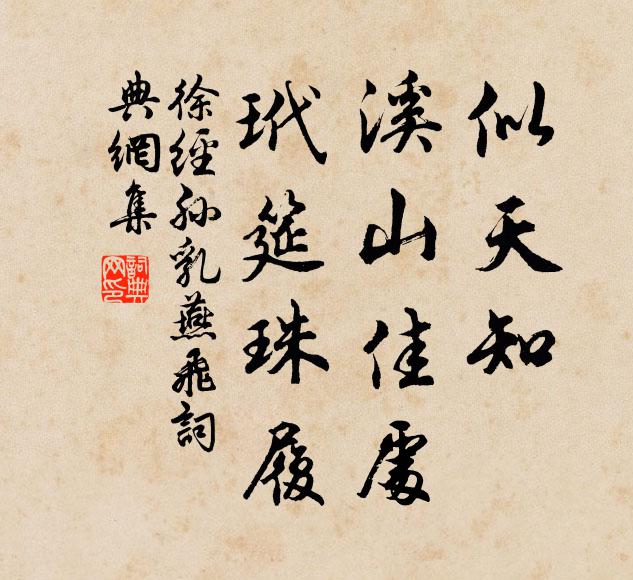 似天知
溪山佳處
玳筵珠履
徐經孙乳燕飛詞
典網集
詞典网印